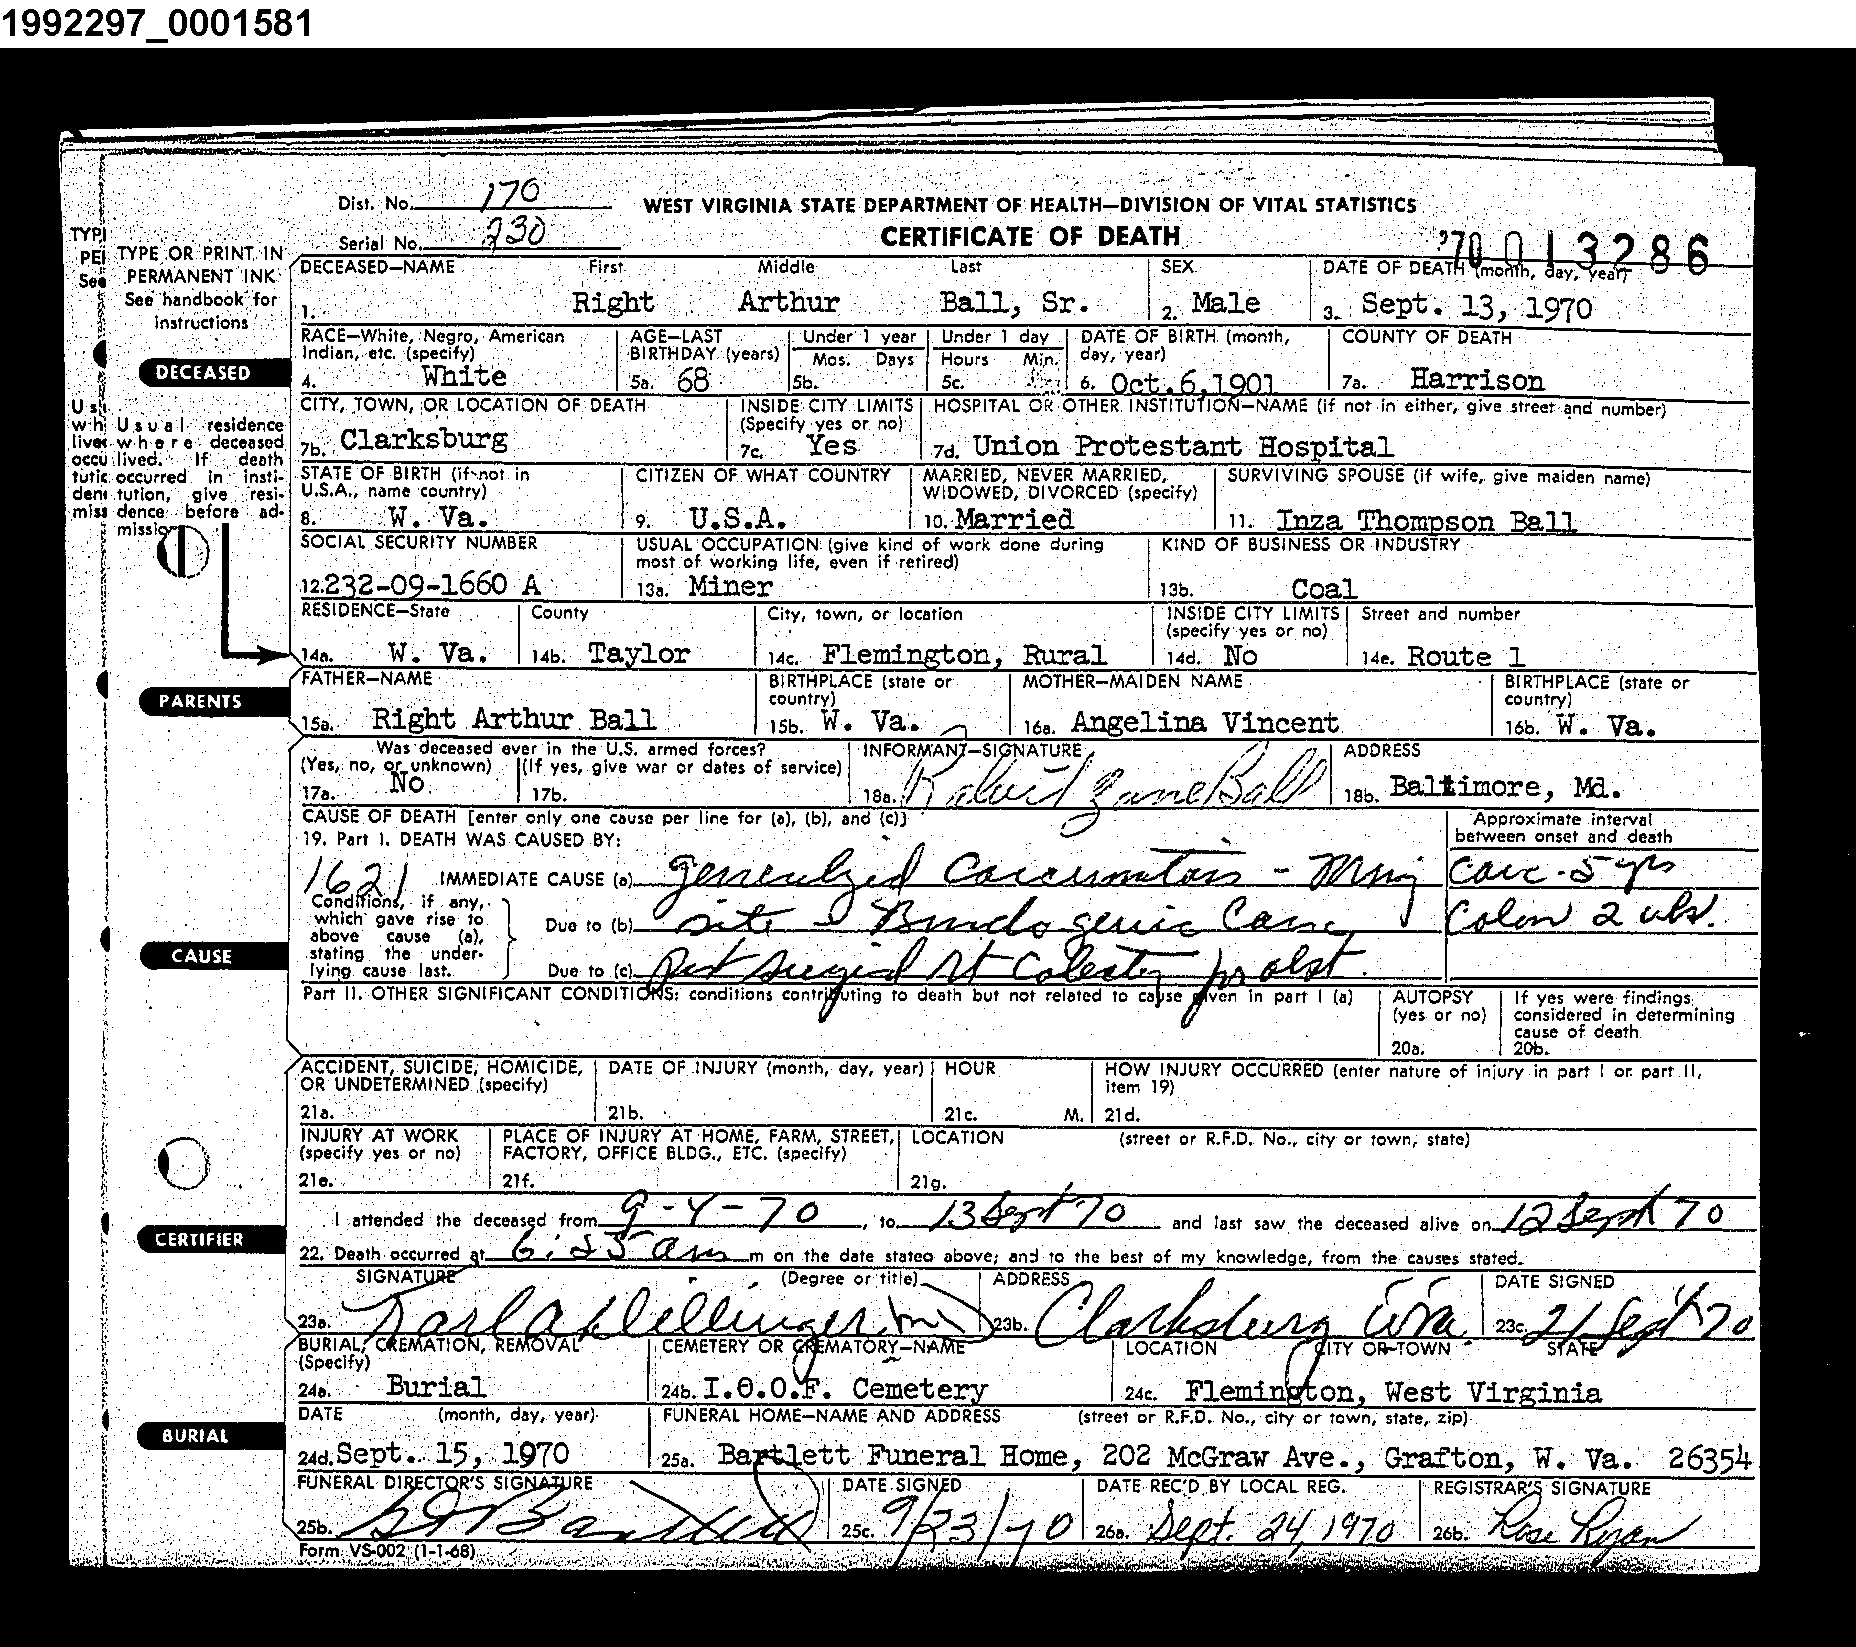 1992297_0001581
Dist. No. 170
WEST VIRGINIA STATE DEPARTMENT OF HEALTH—DIVISION OF VITAL STATISTICS
Serial No. 230
CERTIFICATE OF DEATH
'70 013286
TYPE OR PRINT IN
PERMANENT INK
See handbook for
instructions
DECEASED—NAME First Middle Last
1. Right Arthur Ball, Sr.
SEX
2. Male
DATE OF DEATH (month, day, year)
3. Sept. 13, 1970
DECEASED
RACE—White, Negro, American
Indian, etc. (specify)
4. White
AGE—LAST
BIRTHDAY (years)
5a. 68
Under 1 year
Mos. Days
5b.
Under 1 day
Hours Min.
5c.
DATE OF BIRTH (month,
day, year)
6. Oct.6,1901
COUNTY OF DEATH
7a. Harrison
Usual residence
where deceased
lived. If death
occurred in insti-
tution, give resi-
dence before ad-
mission
CITY, TOWN, OR LOCATION OF DEATH
7b. Clarksburg
INSIDE CITY LIMITS
(Specify yes or no)
7c. Yes
HOSPITAL OR OTHER INSTITUTION—NAME (if not in either, give street and number)
7d. Union Protestant Hospital
STATE OF BIRTH (if not in
U.S.A., name country)
8. W. Va.
CITIZEN OF WHAT COUNTRY
9. U.S.A.
MARRIED, NEVER MARRIED,
WIDOWED, DIVORCED (specify)
10. Married
SURVIVING SPOUSE (if wife, give maiden name)
11. Inza Thompson Ball
SOCIAL SECURITY NUMBER
12. 232-09-1660 A
USUAL OCCUPATION (give kind of work done during
most of working life, even if retired)
13a. Miner
KIND OF BUSINESS OR INDUSTRY
13b. Coal
RESIDENCE—State
14a. W. Va.
County
14b. Taylor
City, town, or location
14c. Flemington, Rural
INSIDE CITY LIMITS
(specify yes or no)
14d. No
Street and number
14e. Route 1
PARENTS
FATHER—NAME
15a. Right Arthur Ball
BIRTHPLACE (state or
country)
15b. W. Va.
MOTHER—MAIDEN NAME
16a. Angelina Vincent
BIRTHPLACE (state or
country)
16b. W. Va.
Was deceased ever in the U.S. armed forces?
(Yes, no, or unknown) (If yes, give war or dates of service)
17a. No 17b.
INFORMANT—SIGNATURE
18a. Robert Zane Ball
ADDRESS
18b. Baltimore, Md.
CAUSE OF DEATH [enter only one cause per line for (a), (b), and (c)]
19. Part I. DEATH WAS CAUSED BY:
Approximate interval
between onset and death
1621 IMMEDIATE CAUSE (a) generalized - carc. 5 yrs
Conditions, if any,
which gave rise to
above cause (a),
stating the under-
lying cause last.
Due to (b) site Colon 2
Due to (c)
CAUSE
Part II. OTHER SIGNIFICANT CONDITIONS: conditions contributing to death but not related to cause given in part I (a)
AUTOPSY
(yes or no)
20a.
If yes were findings
considered in determining
cause of death
20b.
ACCIDENT, SUICIDE, HOMICIDE,
OR UNDETERMINED (specify)
21a.
DATE OF INJURY (month, day, year)
21b.
HOUR
21c. M.
HOW INJURY OCCURRED (enter nature of injury in part I or part II,
item 19)
21d.
INJURY AT WORK
(specify yes or no)
21e.
PLACE OF INJURY AT HOME, FARM, STREET,
FACTORY, OFFICE BLDG., ETC. (specify)
21f.
LOCATION (street or R.F.D. No., city or town, state)
21g.
CERTIFIER
I attended the deceased from 9-4-70, to 13 Sept 70 and last saw the deceased alive on 12 Sept 70
22. Death occurred at 6:25 am m on the date stated above; and to the best of my knowledge, from the causes stated.
SIGNATURE (Degree or title)
23a. Karl A Dillinger MD
ADDRESS
23b. Clarksburg WVa
DATE SIGNED
23c. 21 Sept 70
BURIAL, CREMATION, REMOVAL
(Specify)
24a. Burial
CEMETERY OR CREMATORY—NAME
24b. I.O.O.F. Cemetery
LOCATION CITY OR TOWN STATE
24c. Flemington, West Virginia
BURIAL
DATE (month, day, year)
24d. Sept. 15, 1970
FUNERAL HOME—NAME AND ADDRESS (street or R.F.D. No., city or town, state, zip)
25a. Bartlett Funeral Home, 202 McGraw Ave., Grafton, W. Va. 26354
FUNERAL DIRECTOR'S SIGNATURE
25b. Bartlett
DATE SIGNED
25c. 9/23/70
DATE REC'D BY LOCAL REG.
26a. Sept. 24, 1970
REGISTRAR'S SIGNATURE
26b. Rose Ryan
Form VS-002 (1-1-68)